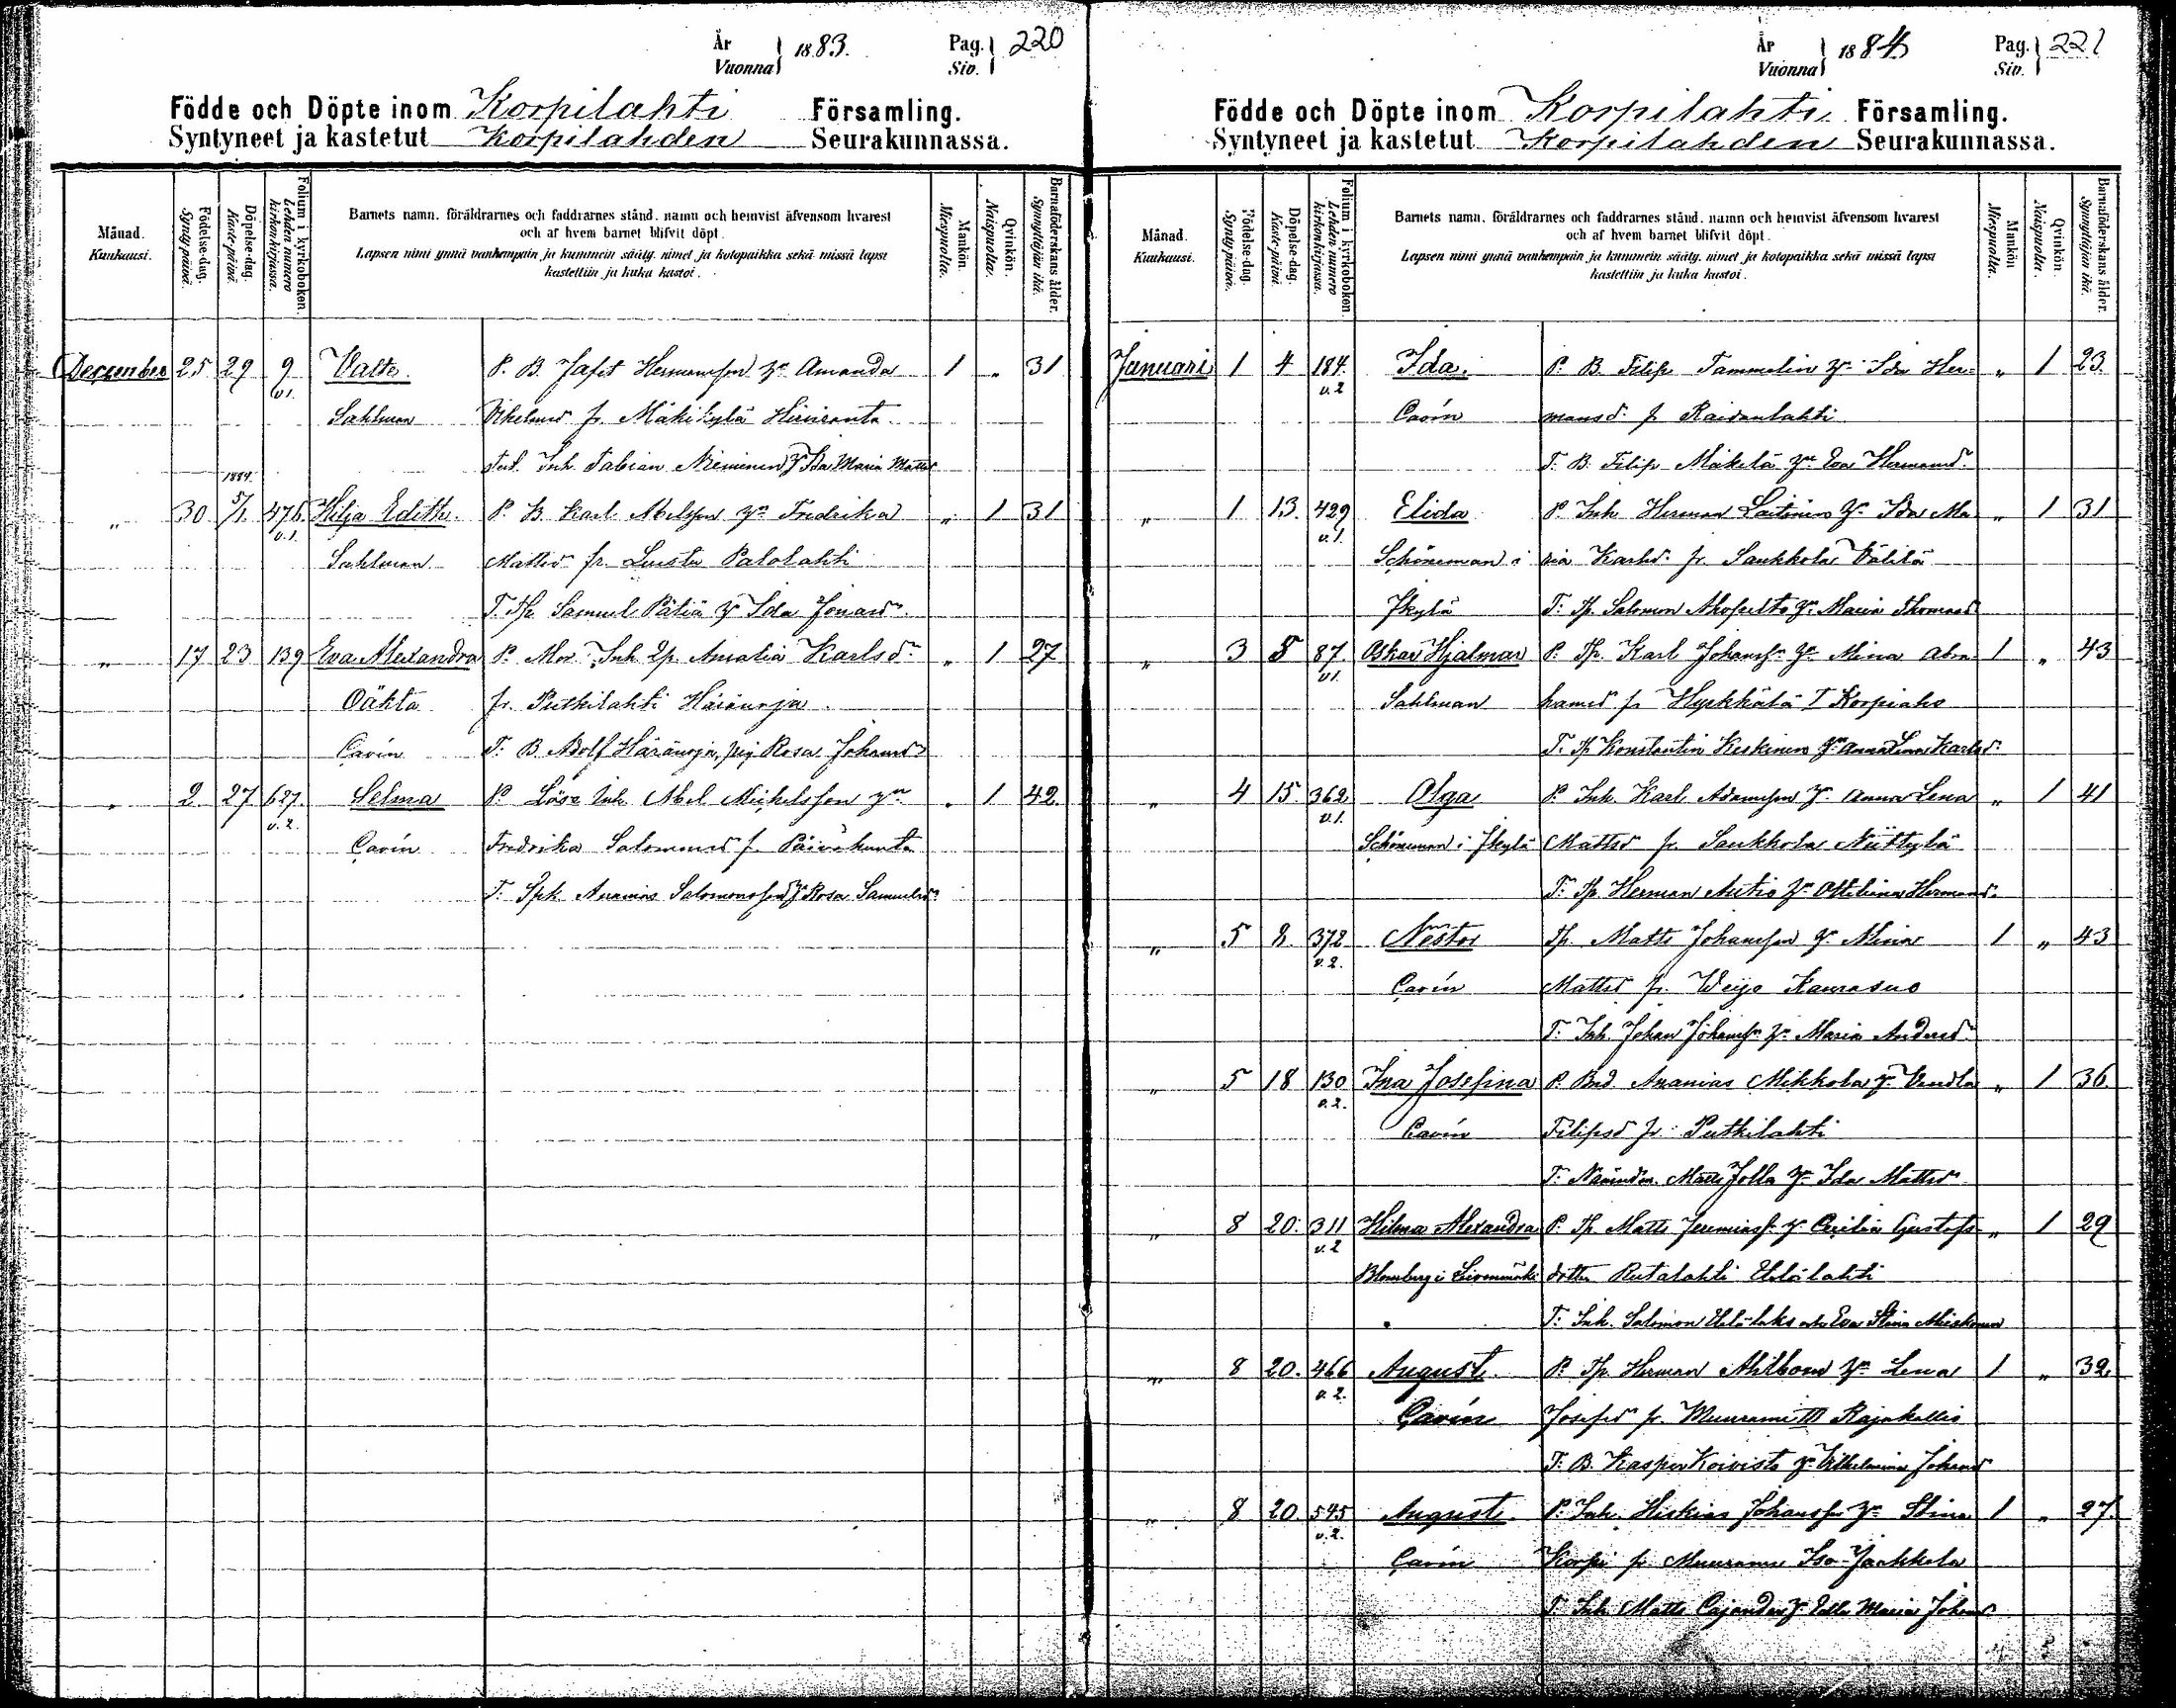 År
Vuonna } 1883. Pag.
Siv. } 220
Födde och Döpte inom Korpilahti Församling.
Syntyneet ja kastetut Korpilahden Seurakunnassa.
Månad.
Kuukausi.
Födelse-dag.
Synty-päivä.
Döpelse-dag.
Kaste-päivä.
Folium i kyrkoboken.
Lehden numero
kirkonkirjassa.
Barnets namn, föräldrarnes och faddrarnes stånd, namn och hemvist äfvensom hvarest
och af hvem barnet blifvit döpt.
Lapsen nimi ynnä vanhempain ja kummein sääty, nimet ja kotopaikka sekä missä lapsi
kastettiin ja kuka kastoi.
Mankön.
Miespuolta.
Qvinkön.
Naispuolta.
Barnaföderskans ålder.
Synnyttäjän ikä.
December 25 29 9 Valter P. B. Jafet Hermansson hu Amanda 1 „ 31
v1.
Sahlman Vilhelmsd fr. Mäkikylä Hiiviranta
Test. Inh. Fabian Nieminen Ida Maria Mattsd
1884.
„ 30 5/1 476. Hilja Edith. P. B. Karl Abelsson Fredrika „ 1 31
v.1.
Sahlman Mattsd fr. Palolahti
T. Tp. Samuel Pätiä Ida Jonasd.
„ 17 23 139 Eva Alexandra P. Mor. Inh. Amalia Karlsd. „ 1 27
fr. Putkilahti
Cavén T: B. Adolf pig. Rosa Johansd
„ 2 27 627. Selma P. Löse Inh. Abel Michelsson „ 1 42
v.2.
Cavén Fredrika Salomonsd f. Päiväkunta
T: Ananias Salomonsson Rosa Samuelsd
År
Vuonna } 1884 Pag.
Siv. } 221
Födde och Döpte inom Korpilahti Församling.
Syntyneet ja kastetut Korpilahden Seurakunnassa.
Månad.
Kuukausi.
Födelse-dag.
Synty-päivä.
Döpelse-dag.
Kaste-päivä.
Folium i kyrkoboken.
Lehden numero
kirkonkirjassa.
Barnets namn, föräldrarnes och faddrarnes stånd, namn och hemvist äfvensom hvarest
och af hvem barnet blifvit döpt.
Lapsen nimi ynnä vanhempain ja kummein sääty, nimet ja kotopaikka sekä missä lapsi
kastettiin ja kuka kastoi.
Mankön
Miespuolta.
Qvinkön.
Naispuolta.
Barnaföderskans ålder.
Synnyttäjän ikä.
Januari 1 4 184. Ida. P. B. Filip Tammelin Ida Her- „ 1 23.
v.2
Cavén mansd. fr Raidanlahti
T. B. Filip Mäkelä Eva Hermansd.
„ 1 13. 429 Elida P. Inh. Herman Laitinen Ida Ma „ 1 31
v.1.
Schöneman i ria Karlsd. fr. Saukkola Välilä
Jkylä T: Tp. Salomon Maria Thomasd
„ 3 8 87. Oskar Hjalmar P. Tp. Karl Johanss. Mina Abra 1 „ 43
v1.
Sahlman hamsd fr Hyrkkälä I Korpiaho
T. Tp Konstantin Keskinen Anna Lena Karlsd.
„ 4 15. 362 Olga P. Inh. Karl Adamsson Anna Lena „ 1 41
v.1.
Schöneman i Jkylä Mattsd fr. Saukkola Niittylä
T: Tp. Herman Autio Ottiliana Hermansd.
„ 5 8. 372 Nestor Tp. Matts Johansson Mina 1 „ 43
v.2.
Cavén Mattsd fr. Weijo Kaurasuo
T: Inh. Johan Johanss. Maria Andersd.
„ 5 18 130 Ina Josefina P. Bnd. Ananias Mikkola Vendla „ 1 36
v.2.
Cavén Filipsd fr. Putkilahti
T: Matts Jolla Ida Mattsd
„ 8 20. 311 Hilma Alexandra P. Tp. Matts Jeremiass. Cecilia Gustafs „ 1 29
v.2
Blomberg i Leivonmäki dotter Rutalahti
T: Inh. Salomon Eva Stina
„ 8 20. 466 August. P. Tp. Herman Ahlbom Lena 1 „ 32
v.2.
Cavén Josefsd fr. Muurame III Rajakallio
T: B. Kasper Koivisto Vilhelmina Johansd
„ 8 20. 545 August. P. Inh. Hiskias Johansson Stina 1 „ 27.
v.2.
Cavén Korpi fr. Muurame Iso-Jaakkola
T. Inh. Matts Cajander Maria Johansd
4 5